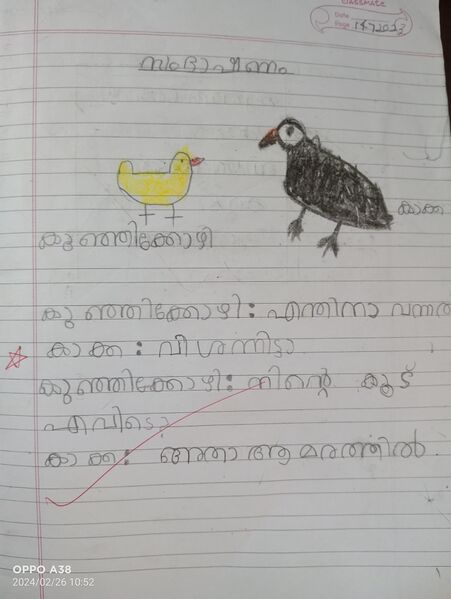 classmate
Date
Page 14-7-2023
സംഭാഷണം
കാക്ക
കുഞ്ഞിക്കോഴി
കുഞ്ഞിക്കോഴി : എന്തിനാ വന്നത
കാക്ക : വിശന്നിട്ടാ
കുഞ്ഞിക്കോഴി : നിന്റെ കൂട്
എവിടെ?
കാക്ക : അതാ ആ മരത്തിൽ.
OPPO A38
2024/02/26 10:52